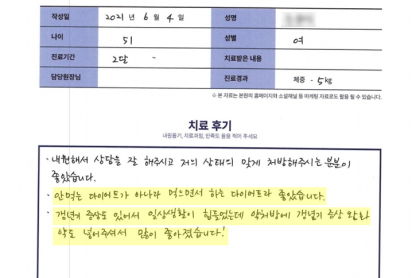 작성일 2021 년 6 월 4 일 성명
나이 51 성별 여
진료기간 2달 - 치료받은 내용
담당원장님 진료경과 체중 - 5kg
※ 본 자료는 본원의 홈페이지와 소셜채널 등 마케팅 자료로도 활용 될 수 있습니다.
치료 후기
내원동기, 치료과정, 만족도 등을 적어 주세요
· 내원해서 상담을 잘 해주시고 저의 상태의 맞게 처방해주시는 부분이
좋았습니다.
· 안먹는 다이어트가 아니라 먹으면서 하는 다이어트라 좋았습니다.
· 갱년기 증상도 있어서 일상생활이 힘들었는데 약처방에 갱년기 증상 완화
약도 넣어주셔서 많이 좋아졌습니다!